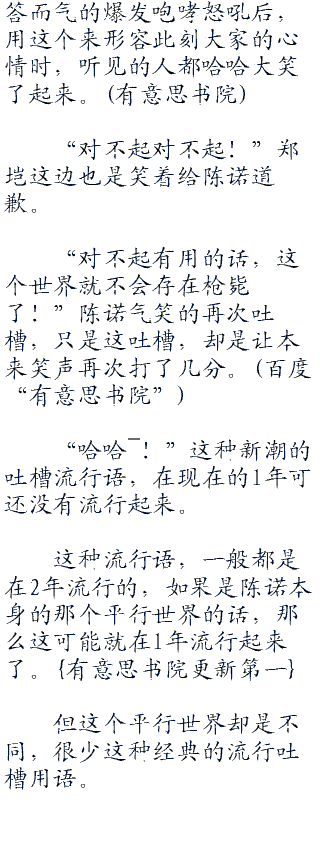 答而气的爆发咆哮怒吼后，
用这个来形容此刻大家的心
情时，听见的人都哈哈大笑
了起来。(有意思书院)
“对不起对不起！”郑
垲这边也是笑着给陈诺道
歉。
“对不起有用的话，这
个世界就不会存在枪毙
了！”陈诺气笑的再次吐
槽，只是这吐槽，却是让本
来笑声再次打了几分。(百度
“有意思书院”)
“哈哈¯！”这种新潮的
吐槽流行语，在现在的1年可
还没有流行起来。
这种流行语，一般都是
在2年流行的，如果是陈诺本
身的那个平行世界的话，那
么这可能就在1年流行起来
了。{有意思书院更新第一}
但这个平行世界却是不
同，很少这种经典的流行吐
槽用语。